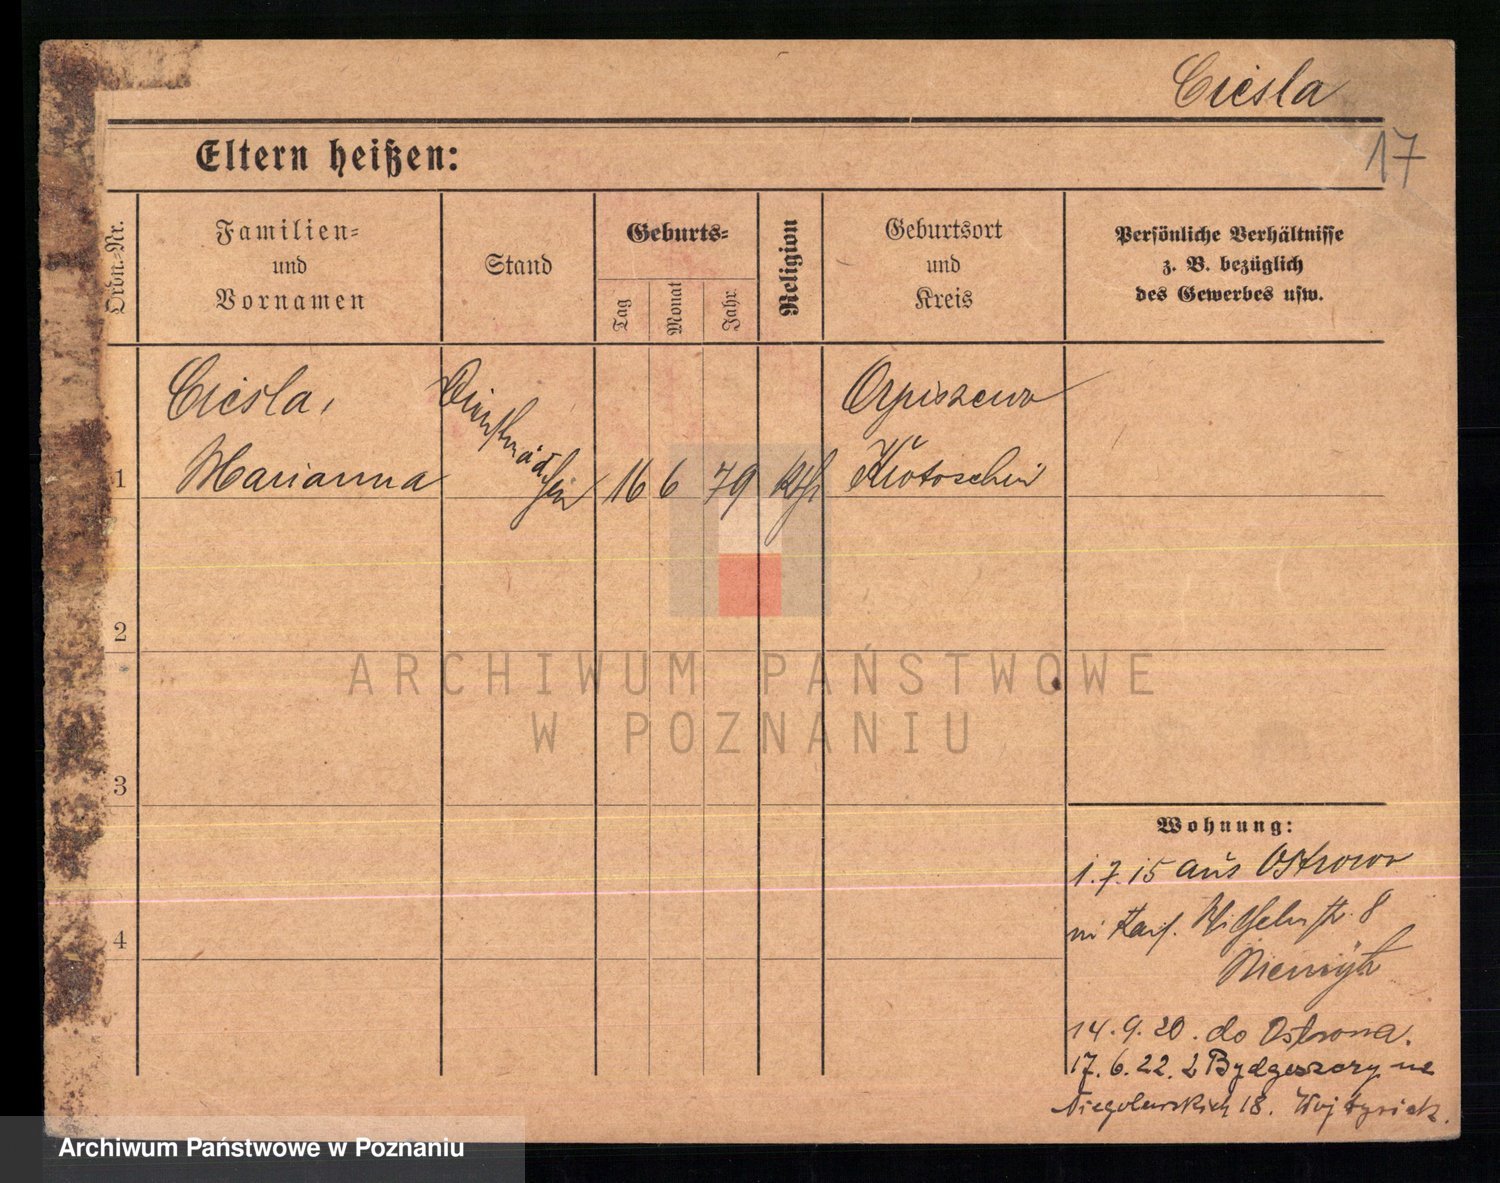 Ciesla
17
Eltern heißen:
Ordn.-Nr.
Familien-
und
Vornamen
Stand
Geburts-
Tag
Monat
Jahr
Religion
Geburtsort
und
Kreis
Persönliche Verhältnisse
z. B. bezüglich
des Gewerbes usw.
1
Ciesla,
Marianna
Dienstmädchen
16 6 79 kth
Orpiszewo
Krotoschin
2
3
4
Wohnung:
1.7.15 aus Ostrowo
Wilhelmstr. 8
14.9.20. do Ostrowa.
17.6.22. z Bydgoszczy na
Niegolewskich 18.
ARCHIWUM PAŃSTWOWE
W POZNANIU
Archiwum Państwowe w Poznaniu